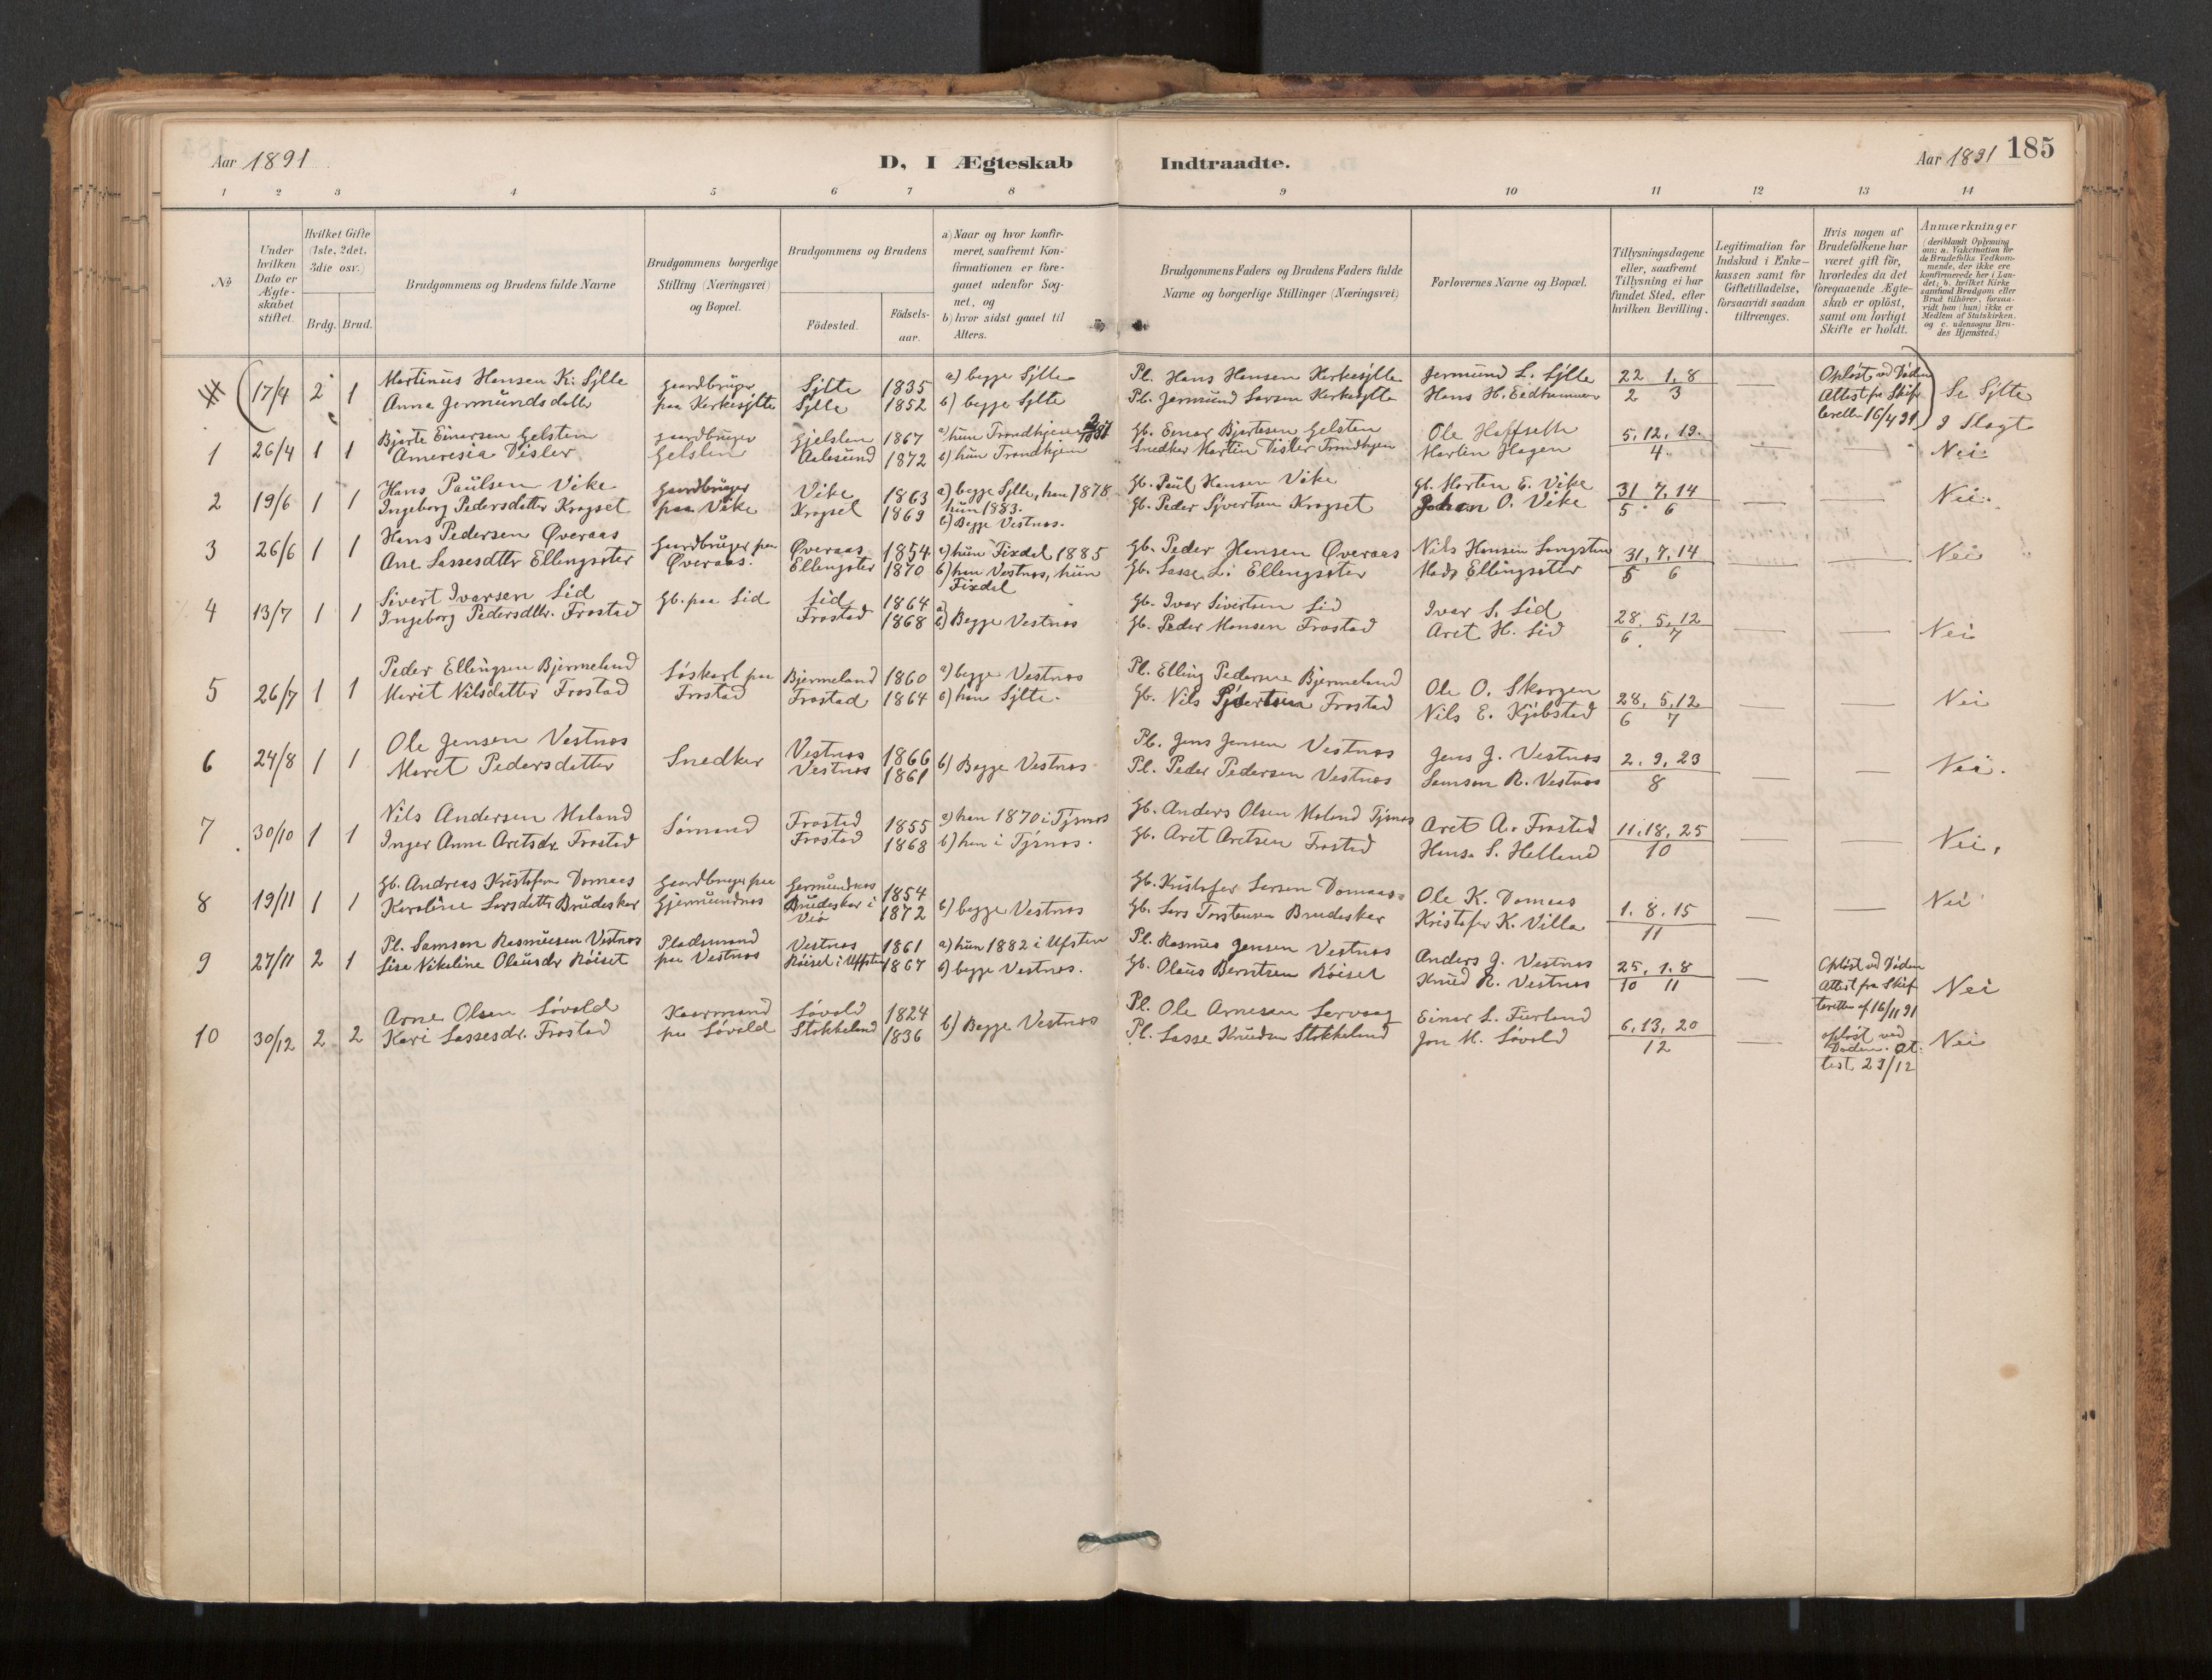 185
Aar 1891
D, I Ægteskab Indtraadte.
Aar 1891
1 2 3 4 5 6 7 8 9 10 11 12 13 14
No
Under hvilken Dato er Ægteskabet stiftet.
Hvilket Gifte (1ste, 2det, 3die osv.)
Brdg. Brud.
Brudgommens og Brudens fulde Navne
Brudgommens borgerlige Stilling (Næringsvei) og Bopæl.
Brudgommens og Brudens
Födested.
Födsels-aar.
a) Naar og hvor konfirmeret, saafremt Konfirmationen er foregaaet udenfor Sognet, og
b) hvor sidst gaaet til Alters.
Brudgommens Faders og Brudens Faders fulde Navne og borgerlige Stillinger (Næringsvei)
Forlovernes Navne og Bopæl.
Tillysningsdagene eller, saafremt Tillysning ei har fundet Sted, efter hvilken Bevilling.
Legitimation for Indskud i Enkekassen samt for Giftetilladelse, forsaavidt saadan tiltrænges.
Hvis nogen af Brudefolkene har været gift för, hvorledes da det foregaaende Ægteskab er oplöst, samt om lovligt Skifte er holdt.
Anmærkninger
(deriblandt Oplysning om: a. Vakcination for de Brudefolks Vedkommende, der ikke ere konfirmerede her i Landet; b. hvilket Kirkesamfund Brudgom eller Brud tilhörer, forsaavidt han (hun) ikke er Medlem af Statskirken, og c. udensogns Brudes Hjemsted.)
17/4 2 1 Martinus Hansen K. Sylte Gaardbruger Sylte 1835 a) begge Sylte Pl. Hans Hansen Kirkesylte Jermund L. Sylte 22 1. 8 — Opløst ved Døden Se Sylte
Anna Jermundsdatter paa Kirkesylte Sylte 1852 b) begge Sylte Pl. Jermund Larsen Kirkesylte Hans H. 2 3 Attest fra Skifteretten 16/4 91
1 26/4 1 1 Bjørte Einarsen Gelsten Gaardbruger Gjelsten 1867 a) hun Trondhjem Gb. Einar Bjørtesen Gelsten Ole Hoffseth 5. 12. 19. — — Nei
Disler Gelsten Aalesund 1872 b) hun Trondhjem Snedker Martin Disler Trondhjem Martin Hagen 4.
2 19/6 1 1 Hans Paulsen Vike Gaardbruger Vike 1863 a) begge Sylte, han 1878 Gb. Paul Hansen Vike Gb. Morten E. Vike 31 7. 14 — — Nei.
Ingeborg Pedersdatter Krogset paa Vike Krogset 1869 hun 1883. Gb. Peder Syvertsen Krogset Johan O. Vike 5. 6
b) Begge Vestnes.
3 26/6 1 1 Hans Pedersen Øveraas Gaardbruger paa Øveraas 1854 a) hun Fixdal 1885 Gb. Peder Hansen Øveraas Nils Hansen 31. 7. 14 — — Nei
Ane Lassesdtter Ellingsæter Øveraas. Ellingsæter 1870 b) han Vestnes, hun Gb. Lasse L. Ellingsæter Mads Ellingsæter 5 6
Fixdal
4 13/7 1 1 Sivert Ivarsen Lid Gb. paa Lid Lid 1864 a) Gb. Ivar Sivertsen Lid Ivar S. Lid 28. 5. 12 — — Nei
Ingeborg Pedersdtr. Frostad Frostad 1868 b) Begge Vestnes Gb. Peder Monsen Frostad Aret H. Lid 6. 7
5 26/7 1 1 Peder Ellingsen Bjermeland Løskarl paa Bjermeland 1860 a) begge Vestnes Pl. Elling Pedersen Bjermeland Ole O. Skorgen 28. 5. 12 — — Nei
Marit Nilsdatter Frostad Frostad Frostad 1864 b) han Sylte. Gb. Nils Frostad Nils E. Kjøbstad 6 7
6 24/8 1 1 Ole Jensen Vestnes Snedker Vestnes 1866 b) Begge Vestnes Pl. Jens Jensen Vestnes Jens J. Vestnes 2. 9. 23 — — Nei.
Maret Pedersdatter Vestnes 1861 Pl. Peder Pedersen Vestnes Samson R. Vestnes 8
7 30/10 1 1 Nils Andersen Meland Sømand Frostad 1855 a) han 1870 i Tjernes Gb. Anders Olsen Meland Aret A. Frostad 11. 18. 25 — — Nei.
Inger Anne Aretsdr. Frostad Frostad 1868 b) han i Tjernes. Gb. Aret Aretsen Frostad Hans S. Helland 10
8 19/11 1 1 Gb. Andreas Kristofersen Domaas Gaardbruger paa Germundnes 1854 Gb. Kristofer Larsen Domaas Ole K. Domaas 1. 8. 15 — — Nei
Karoline Larsdatter Brudeskar Gjermundnes Brudeskar i Veø 1872 b) begge Vestnes Gb. Lars Torstensen Brudeskar Kristofer K. Villa 11
9 27/11 2 1 Pl. Samson Rasmussen Vestnes Pladsmand Vestnes 1861 a) hun 1882 i Ulfsten Pl. Rasmus Jensen Vestnes Anders J. Vestnes 25. 1. 8 — Opløst ved Døden Nei
Lise Nikoline Olausdr Røiset paa Vestnes Røiset i Ulfsten 1867 b) begge Vestnes. Gb. Olaus Berntsen Røiset Knud R. Vestnes 10 11 Attest fra Skifteretten af 16/11 91
10 30/12 2 2 Arne Olsen Løvold Kaarmand Løvold 1824 b) Begge Vestnes Pl. Ole Arnesen Einar L. Furland 6. 13. 20 — opløst ved Nei
Kari Lassesdr. Frostad paa Løvold Stokkeland 1836 Pl. Lasse Knudsen Stokkeland Jon M. Løvold 12 Døden. Attest 23/12